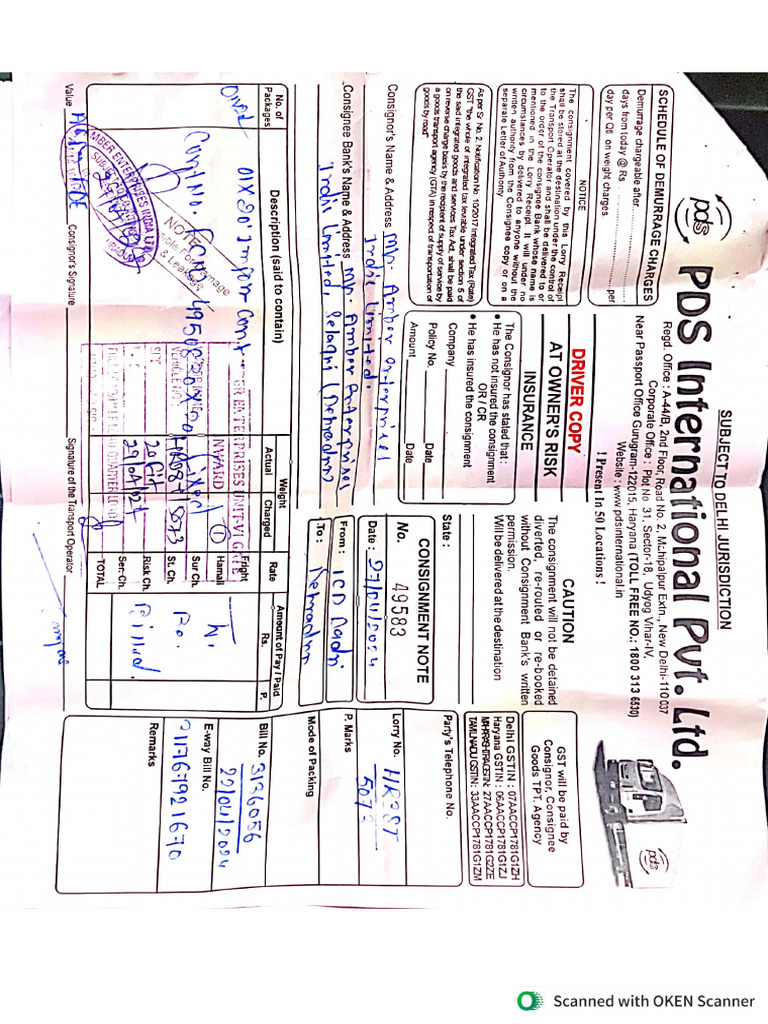 SUBJECT TO DELHI JURISDICTION
pds
PDS International Pvt. Ltd.
Regd. Office : A-44/B, 2nd Floor, Road No. 2, Mahipalpur Extn., New Delhi-110 037
Corporate Office : Plot No 31, Sector-18, Udyog Vihar-IV,
Near Passport Office Gurugram-122015, Haryana (TOLL FREE NO.: 1800 313 6530)
Website : www.pdsinternational.in
! Present In 50 Locations !
pds
SCHEDULE OF DEMURRAGE CHARGES
Demurrage chargeable after
days from today @ Rs. per
day per Qtl on weight charges.
NOTICE
The consignment covered by this Lorry Receipt
shall be stored at the destination under the control of
the Transport Operator and shall be delivered to or
to the order of the consignee Bank whose name is
mentioned in the Lorry Receipt. It will under no
circumstances by delivered to anyone without the
written authority from the Consignee copy or on a
separate Letter of Authority.
As per Sr No. 2, Notification No. 10/2017 Integrated Tax (Rate)
GST "the whole of integrated tax leviable under section 5 of
the said integrated goods and services Tax Act, shall be paid
on reverse charge basis by the recipient of supply of service by
a goods transport agency (GTA) in respect of transportation of
goods by road"
DRIVER COPY
AT OWNER'S RISK
INSURANCE
The Consignor has stated that :
● He has not insured the consignment
OR / CR
● He has insured the consignment
Company
Policy No. Date
Amount Date
CAUTION
The consignment will not be detained
diverted, re-routed or re-booked
without Consignment Bank's written
permission.
Will be delivered at the destination
State :
CONSIGNMENT NOTE
No. 49583
Date : 27/04/2024
From : ICD Dadri
To : Dehradun
GST will be paid by
Consignor, Consignee
Goods TPT. Agency
Delhi GSTIN : 07AACCP1781G1ZH
Haryana GSTIN : 06AACCP1781G1ZJ
MHARASHTRA GSTIN: 27AACCP1781G2ZE
TAMILNADU GSTIN : 33AACCP1781G1ZM
Party's Telephone No.
Lorry No. HR38T
5073
P. Marks
Mode of Packing
Bill No. 3136056
22/04/2024
E-way Bill No.
Remarks
Consignor's Name & Address Mr. Amber Enterprises
India Limited.
Consignee Bank's Name & Address Mr. Amber Enterprises
India Limited, Selaqui (Dehradun)
No. of
Packages
Description (said to contain)
Weight
Actual
Charged
Rate
Amount of Pay / Paid
Rs. P.
01X20' Import Cont.
Cont No.
Fright
Hamali
Sur Ch.
St. Ch.
Risk Ch.
Ser. Ch.
TOTAL
To.
Be.
Billed.
INWARD
VEHICLE NO.
AMBER ENTERPRISES INDIA LTD.
NOTE
& Leakage
Value
Consignor's Signature
Signature of the Transport Operator
Scanned with OKEN Scanner